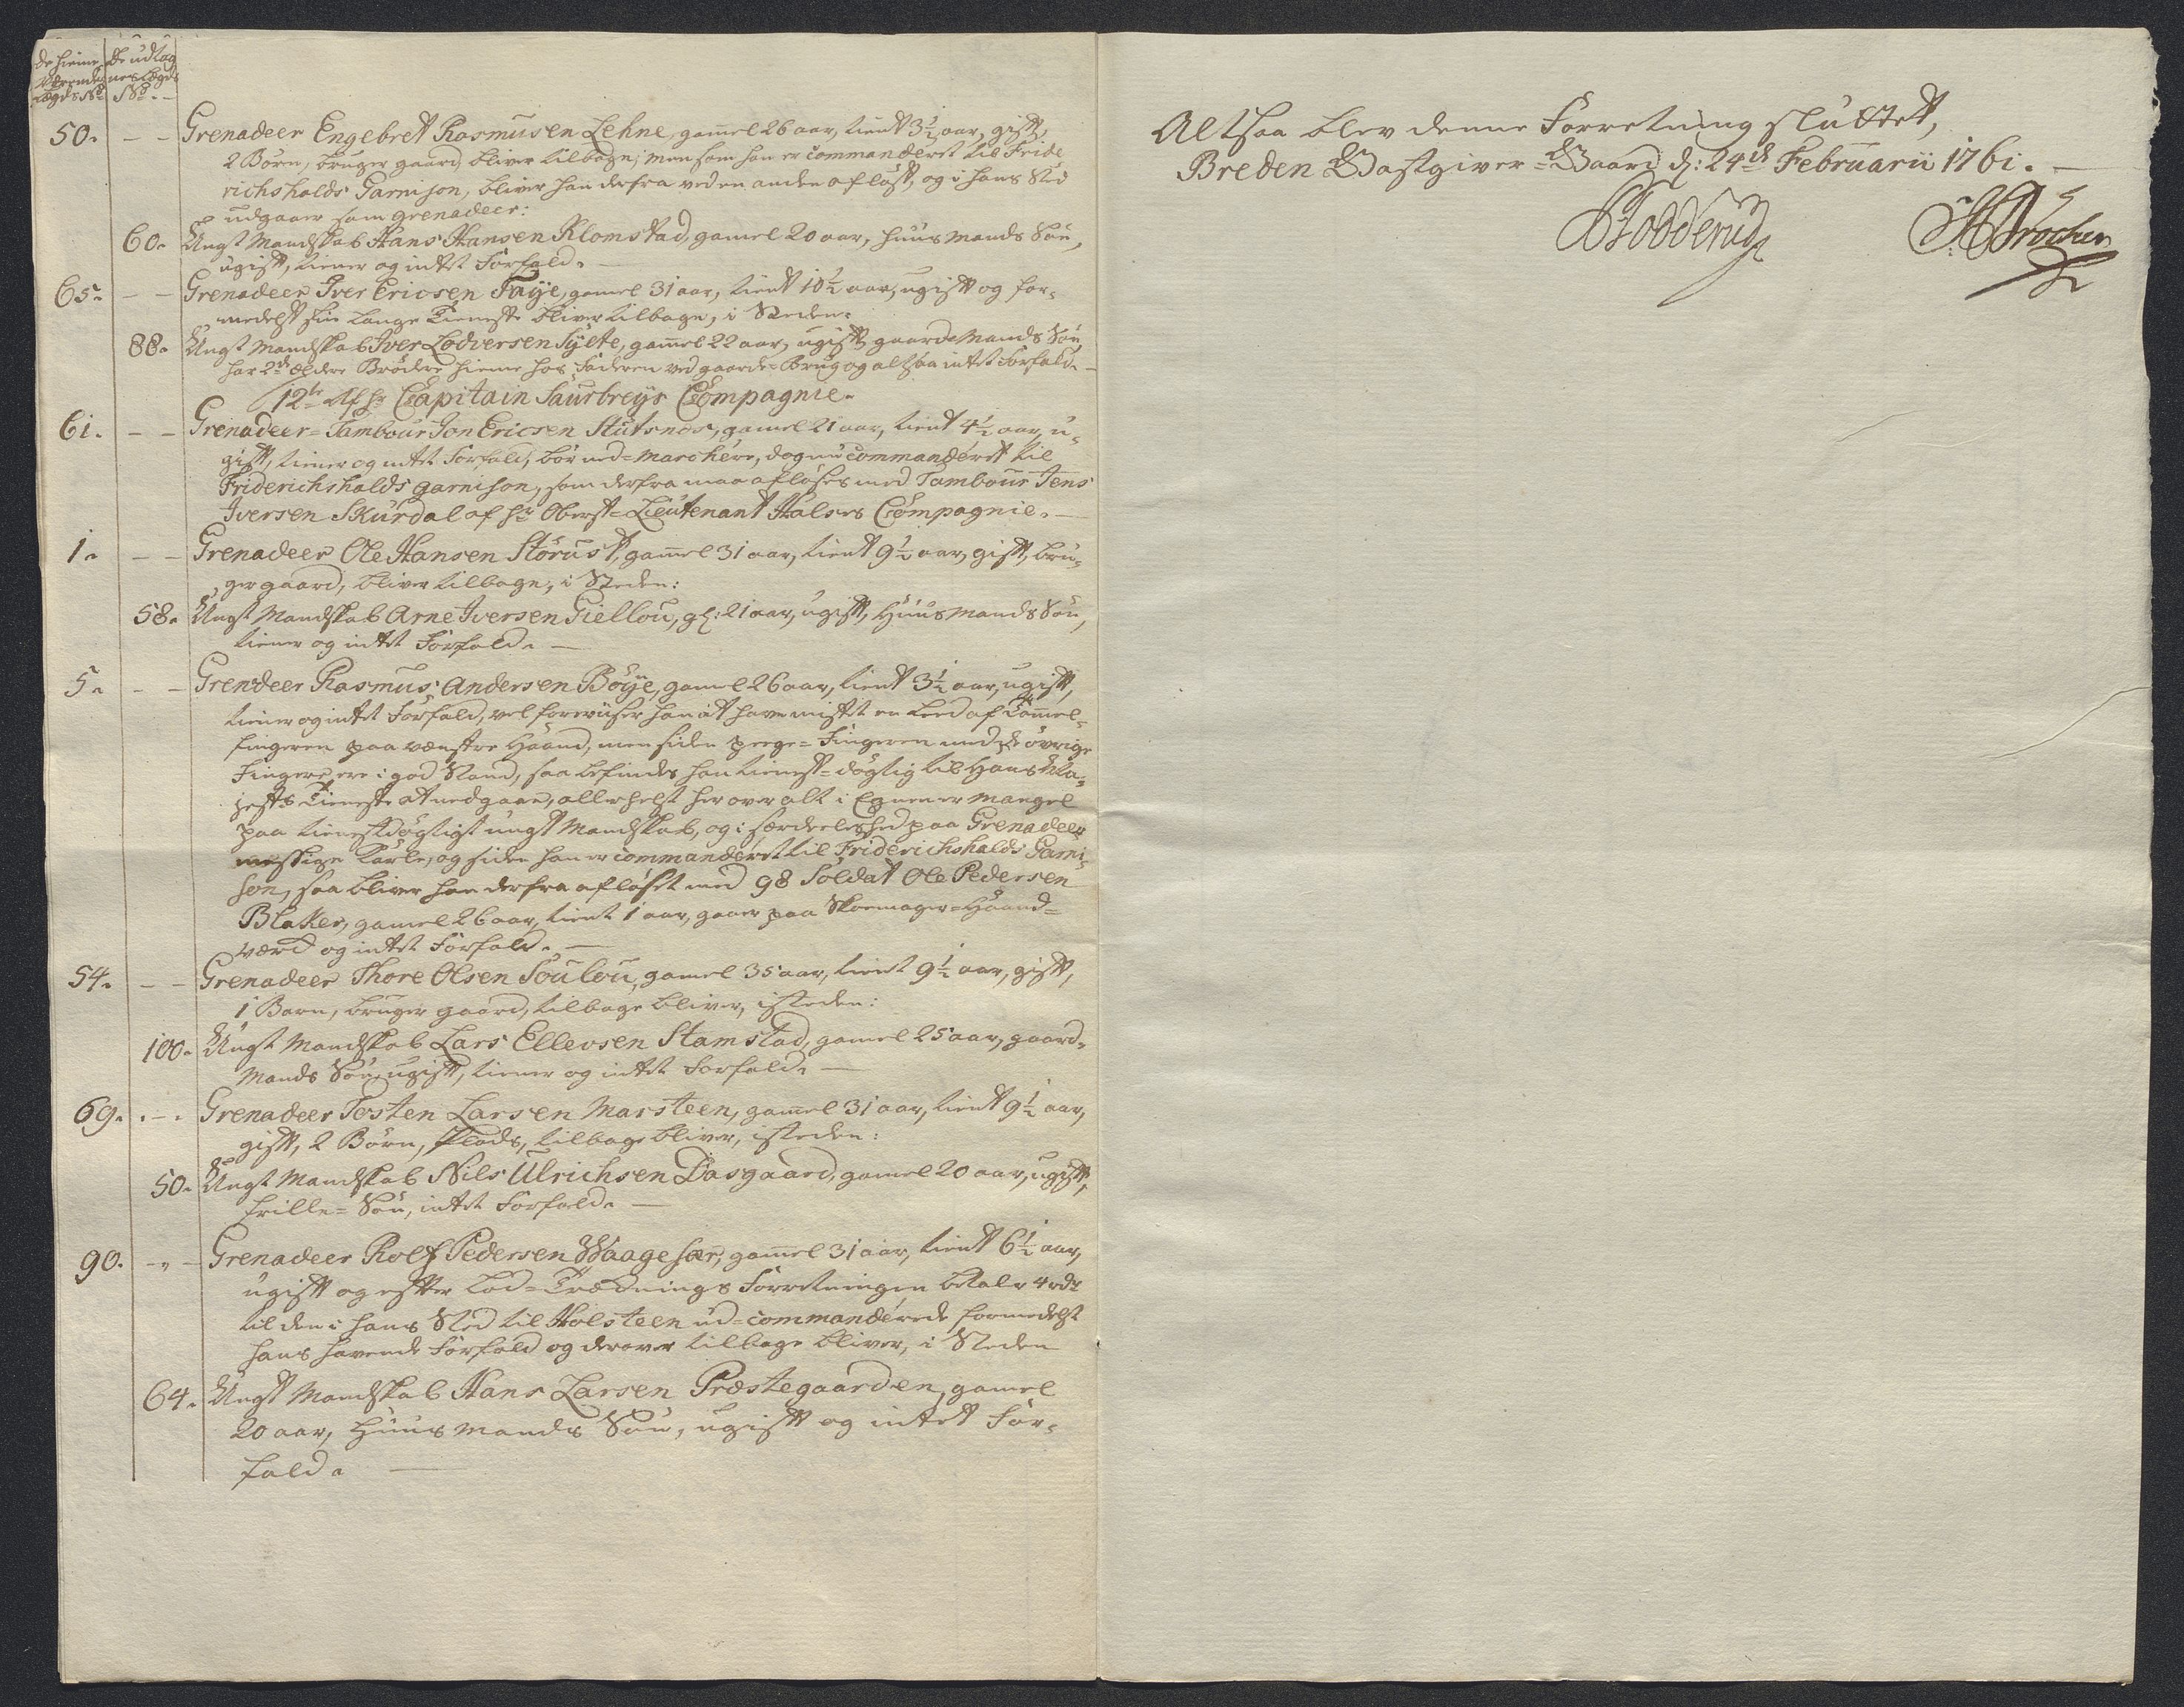 de hieme de udtag
værende nes Lægds
Lægds No No
50. Grenadeer Engebret Rasmusen Lehne, gamel 26 aar, tient 3½ aar, gift,
2 Børn, bruger gaard, bliver tilbage; men som han er commanderet til Fride
richshalds Garnison, bliver han derfra ved en anden afløst, og i hans Sted
udgaaer som grenadeer:
60. Ungt Mandskab Hans Hansen Klomstad, gamel 20 aar, Huusmands Søn,
ugift, tiener og intet Forfald.
65. Grenadeer Iver Ericsen Faÿe, gamel 31 aar, tient 10½ aar, ugift og for-
medelst sin lange Tieneste bliver tilbage, i Steden:
88. Ungt Mandskab Iver Lodversen Sÿlte, gammel 22 aar, ugift, gaardMands Søn
har 2de ældre Brødre hieme hos Faderen ved gaards-Brug og altsaa intet Forfald.
12te Af Hr Capitain Saurbreÿs Compagnie.
61. Grenadeer-Tambour Jon Ericsen Stutsnes, gamel 21 aar, tient 4½ aar, u-
gift, tiener og intet Forfald, bør ned-Marchere, dog nu commanderet til
Friderichshalds garnison, som derfra maa afløses med Tambour Jens
Iversen Skurdal af Hr Oberst-Lieutenant Halses Compagnie.
1. Grenadeer Ole Hansen Storust, gamel 31 aar, tient 9½ aar, gift, bru-
ger gaard, bliver tilbage, i Steden:
58. Ungt Mandskab Arne Iversen Giellou, gl: 21 aar, ugift, HuusMands Søn,
tiener og intet Forfald.
5. Grendeer Rasmus Andersen Bøÿe, gamel 26 aar, tient 3½ aar, ugift,
tiener og intet Forfald, vel foreviser han at have mistet en Leed af Tommel-
fingeren paa venstre Haand, men siden Peege-Fingeren med de øvrige
Fingere ere i god Stand, saa befindes han tienest-dygtig til Hans Ma-
jestts Tieneste at nedgaae, allerhelst her over alt i Egnen er Mangel
paa tienestdygtigt ungt Mandskab, og i særdeleshed paa Grenadeer
messige Karle, og siden han er commanderet til Friderichshalds Garni-
son, saa bliver han derfra afløset med 98 Soldat Ole Pedersen
Blaker, gamel 26 aar, tient 1 aar, gaaer paa Skoemager-Haand-
værk og intet Forfald.
54. Grenadeer Thore Olsen Soulou, gamel 35 aar, tient 9½ aar, gift,
1 Barn, bruger gaard, tilbage bliver, isteden:
100. Ungt Mandskab Lars Ellevsen Stamstad, gamel 25 aar, gaard-
Mands Søn, ugift, tiener og intet Forfald.
69. Grenadeer Tosten Larsen Marsteen, gamel 31 aar, tient 9½ aar,
gift, 2 Børn, Plads, tilbage bliver, isteden:
50. Ungt Mandskab Nils Ulrichsen Dasgaard, gamel 20 aar, ugift,
Frille-Søn, intet Forfald.
90. Grenadeer Rolf Pedersen Waagesær, gammel 31 aar, tient 6½ aar,
ugift og efter Lod-Trædnings Forretningen betaler 4 rdr
til den i hans Sted til Holsteen ud-commanderede formedelst
hans havende Forfald og derover tilbage bliver, i Steden
64. Ungt Mandskab Hans Larsen Præstegaarden, gamel
20 aar, Huus Mands Søn, ugift og intet For-
fald.
Altsaa blev denne Forretning sluttet,
Breden Gastgiver-Gaard d: 24de Februarii 1761.